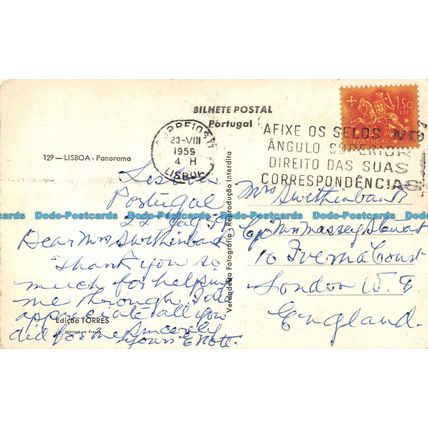 BILHETE POSTAL
Portugal
CORREIOS
23-VIII
1959
4 H
LISBOA
AFIXE OS SELOS NO
ÂNGULO SUPERIOR
DIREITO DAS SUAS
CORRESPONDÊNCIAS
1$50
129 — LISBOA - Panorama
Lisbon
Portugal
Dear Mrs Swithenbank
Thank you so
much for helping
me through, I do
appreciate all you
did for me. Sincerely
Yours
Edição TORRES
Verdadeira Fotografia - Reprodução Interdita
Mrs Swithenbank
C/o Mrs Massey Stewart
10 Iverna Court
London W. 8
England.
Dodo-Postcards Dodo-Postcards Dodo-Postcards Dodo-Postcards Dodo-Postcards